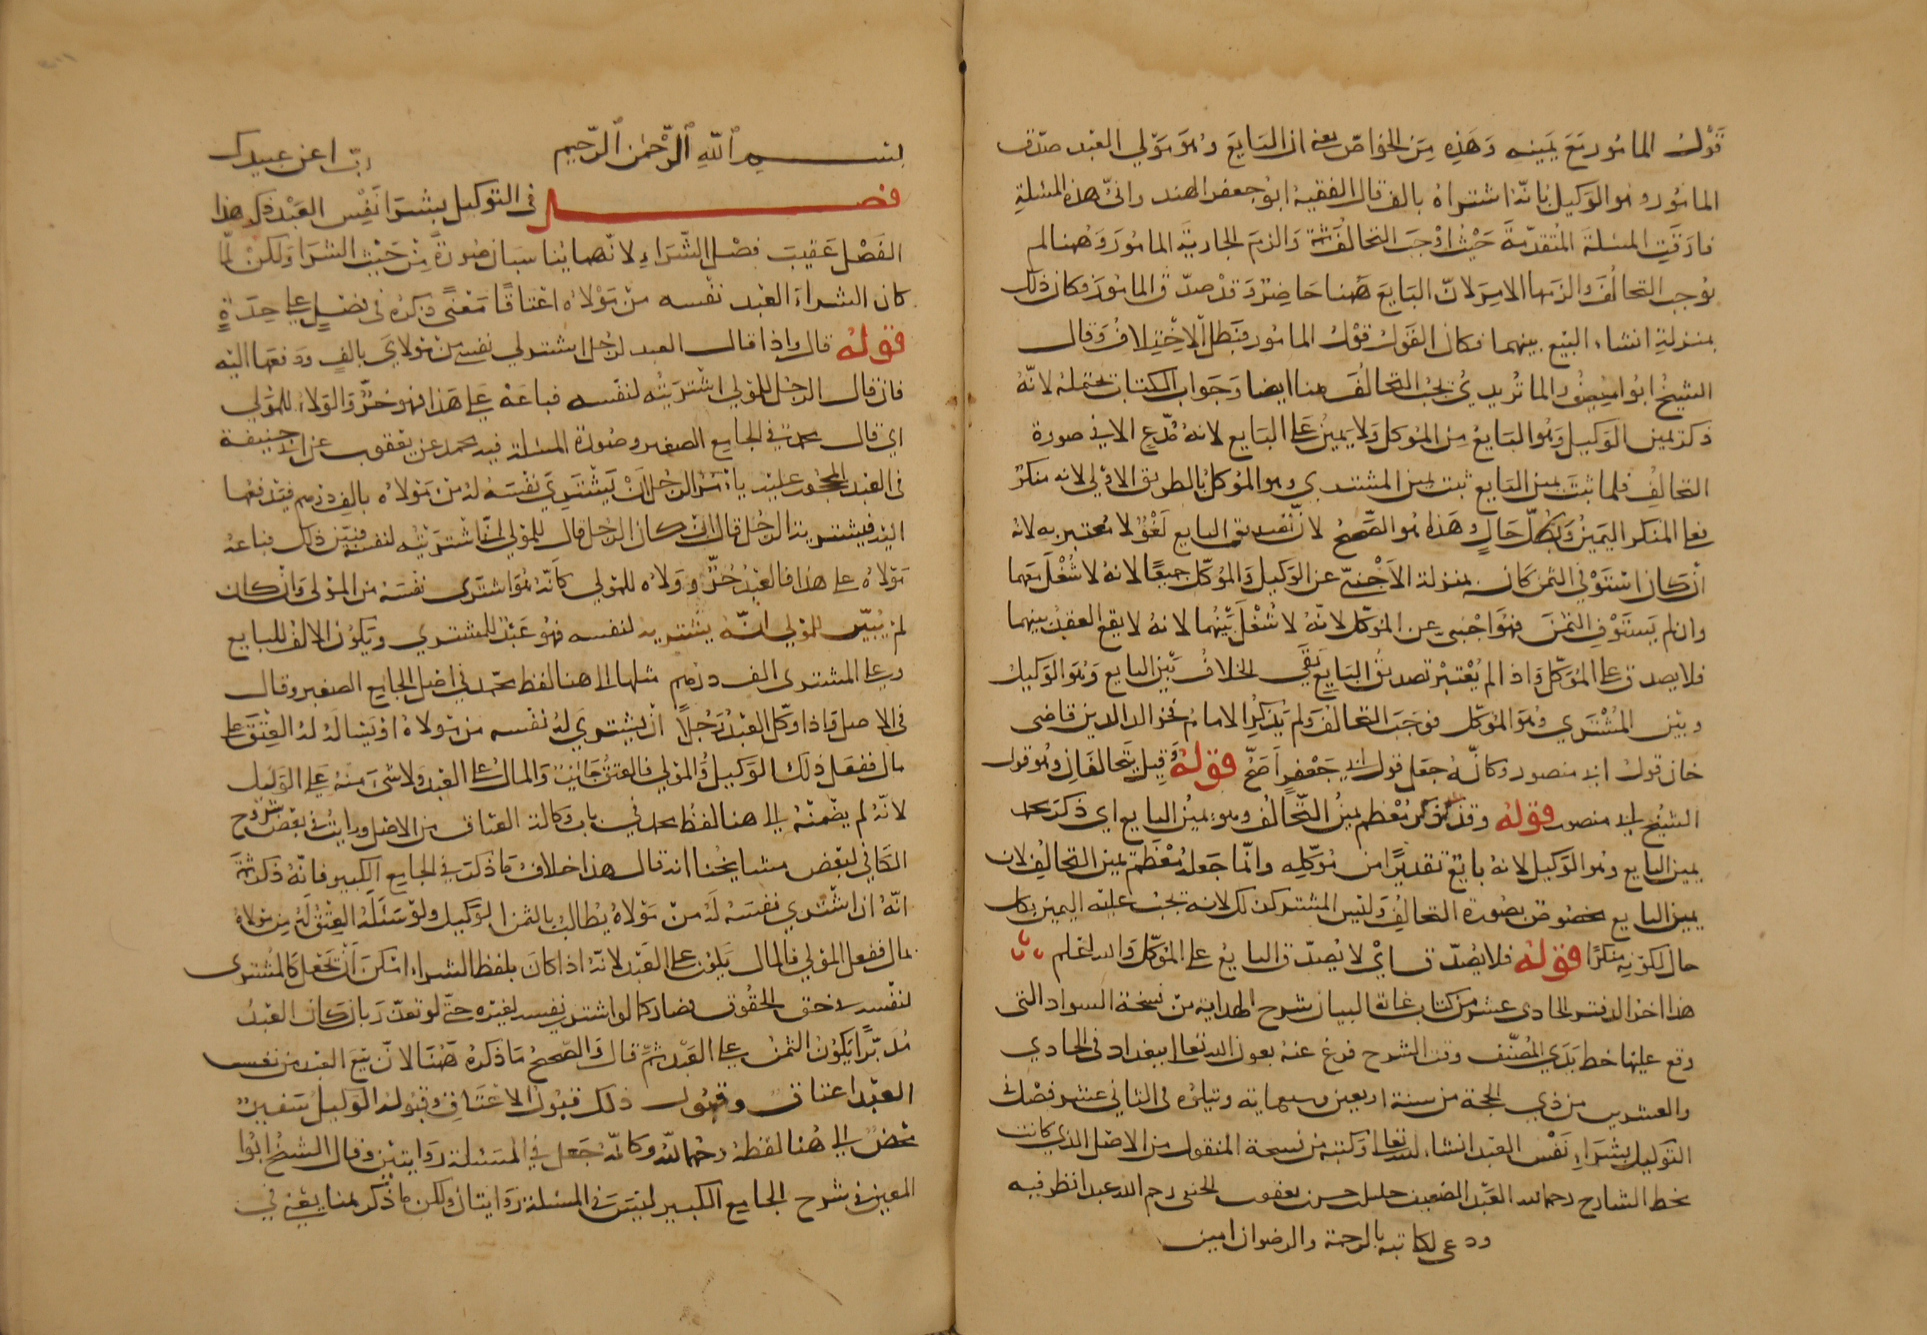 قول المأمور مع يمينه وهذه من الخواص يعني ان البايع وهو مولي العبد صدق
المأمور وهو الوكيل بانه اشتراه بالف قال الفقيه ابو جعفر الهندواني هذه المسئلة
فارقت المسئلة المتقدمة حيث اوجب التحالف ثمة والزم الجارية المأمور وههنا لم
يوجب التحالف والزمها الامر لان البايع ههنا حاضر وقد صدق المأمور فكان ذلك
بمنزلة انشاء البيع بينهما فكان القول قول المأمور فبطل الاختلاف وقال
الشيخ ابو منصور الماتريدي يجب التحالف هنا ايضا وجواب الكتاب يحتمله لانه
ذكر يمين الوكيل وهو البايع من الموكل ولا يمين على البايع لانه مدع الا في صورة
التحالف فلما ثبت يمين البايع ثبت يمين المشتري وهو الموكل بالطريق الاولي لانه منكر
فعلى المنكر اليمين بكل حال وهذه هو الصحيح لان تصديق البايع لغو لا معتبر به لانه
ان كان استوفى الثمن كان بمنزلة الاجنبي عن الوكيل والموكل جميعا لانه لا شغل معهما
وان لم يستوف الثمن فهو اجنبي عن الموكل لانه لا شغل بينهما لانه لا يقع العقد بينهما
فلا يصدق على الموكل واذا لم يعتبر تصديق البايع بقي الخلاف بين البايع وهو الوكيل
وبين المشتري وهو الموكل فوجب التحالف ولم يذكر الامام فخر الدين قاضي
خان قول ابي منصور وكانه جعل قول ابي جعفر اصح قوله وقيل يتحالفان وهو قول
الشيخ ابي منصور قوله وقد ذكر معظم يمين التحالف وهو يمين البايع اي ذكر محمد
يمين البايع وهو الوكيل لانه بايع تقديرا من موكله وانما جعله معظم يمين التحالف لان
يمين البايع مخصوص بصورة التحالف وليس المشتري كذلك لانه تجب عليه اليمين بكل
حال لكونه منكرا قوله فلا يصدق اي لا يصدق البايع على الموكل والله اعلم
هذا اخر الدفتر الحادي عشر من كتاب غاية البيان شرح الهداية من نسخة السواد التي
وقع عليها خط يدي المصنف وقد الشرح فرغ عنه بعون الله تعالى ببغداد في الحادي
والعشرين من ذي الحجة من سنة اربعين وسبعماية ويتلوه في الثاني عشر فصل في
التوكيل بشراء نفس العبد انشاء الله تعالى وكتبه من نسخة المنقول من الاصل الذي كانت
بخط الشارح رحمه الله العبد الضعيف خليل حسن يعقوب الحنفي رحم الله عبدا نظر فيه
ودعى لكاتبه بالرحمة والرضوان امين
بسم الله الرحمن الرحيم رب اعن عبيدك
فصل في التوكيل بشرا نفس العبد ذكر هذا
الفصل عقيب فصل الشراء لانهما يناسبان صورة من حيث الشرا ولكن لما
كان الشراء العبد نفسه من مولاه اعتاقا معنى ذكره في فصل على حدة
قوله قال واذا قال العبد لرجل اشتر لي نفسي من مولاي بالف ودفعها اليه
فان قال الرجل للمولي اشتريته لنفسه فباعه على هذا فهو حر والولاء للمولي
اي قال محمد في الجامع الصغير وصورة المسئلة فيه محمد عن يعقوب عن ابي حنيفة
في العبد المحجور عليه يأمر الرجل ان يشتري نفسه له من مولاه بالف درهم فيدفعها
اليه فيشتريه الرجل قال ان كان الرجل قال للمولي انما اشتريته لنفسه فبين ذلك فباعه
مولاه على هذا فالعبد حر وولاه للمولي كانه هو اشترى نفسه من المولى وان كان
لم يبين للمولي انه يشتريه لنفسه فهو عبد للمشتري ويكون الالف للبايع
وعلى المشترى الف درهم مثلها الى هنا لفظ محمد في اصل الجامع الصغير وقال
في الاصل واذا وكل العبد رجلا ان يشتري له نفسه من مولاه او يسأله له العتق على
مال ففعل ذلك الوكيل والمولى فالعتق جائز والمال على العبد ولا شيء منه على الوكيل
لانه لم يضمنه الى هنا لفظ محمد في باب وكالة العتاق من الاصل ورايت في بعض شروح
الكافي لبعض مشايخنا انه قال هذا خلاف ما ذكر في الجامع الكبير فانه ذكر ثمة
انه ان اشترى نفسه له من مولاه يطالب بالثمن الوكيل ولو سئله العتق له من مولاه
بمال ففعل المولي فالمال يكون على العبد لانه اذا كان بلفظ الشراء امكن ان تجعل كالمشترى
لنفسه في حق الحقوق فصار كما لو اشترى نفسه لغيره حتى لو تعذر بان كان العبد
مدبرا يكون الثمن على العبد ثم قال والصحيح ما ذكره ههنا لان بيع العبد من نفس
العبد اعتاق وقبول ذلك قبول الاعتاق وقبوله الوكيل سفير
محض الى هنا لفظه رحمه الله وكانه جعل في المسئلة روايتين وقال الشيخ ابو
المعين في شرح الجامع الكبير ليس في المسئلة روايتان ولكن ما ذكر هنا يعني في